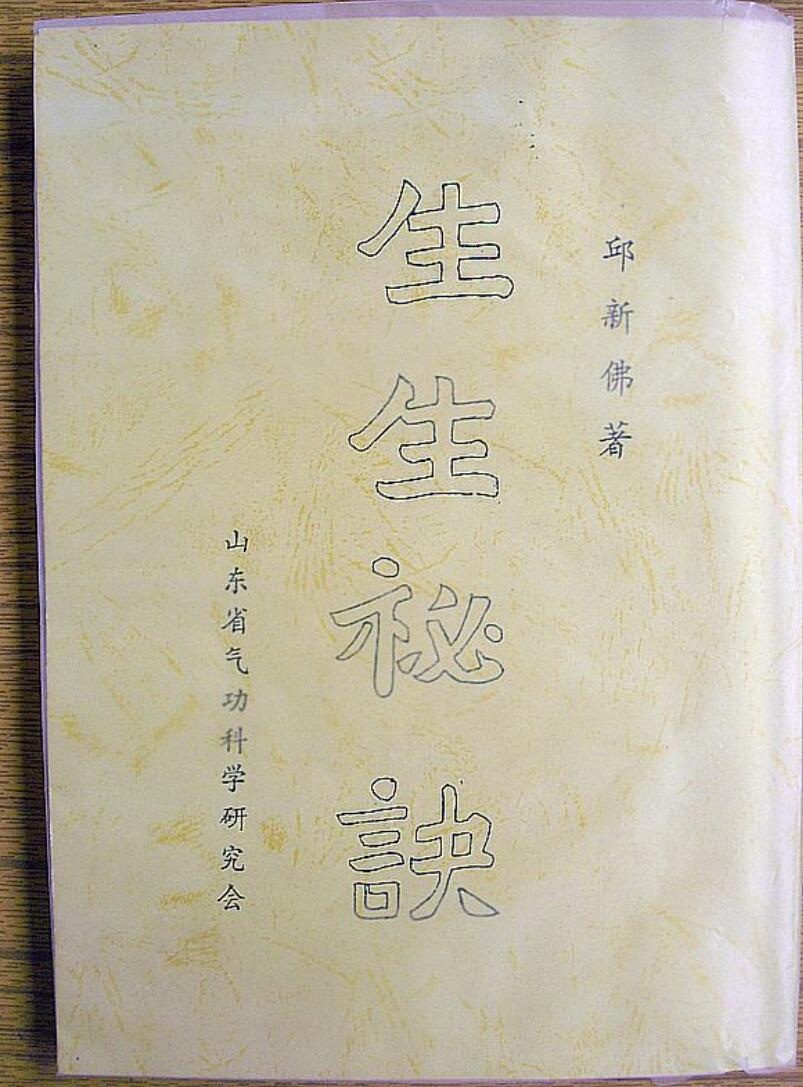 邱新佛著
生生祕訣
山东省气功科学研究会